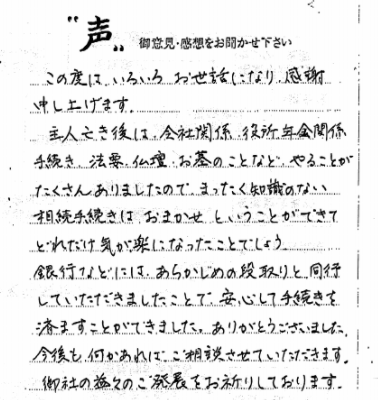 "声" 御意見・感想をお聞かせ下さい
この度は、いろいろ お世話になり、感謝
申し上げます。
主人亡き後は、会社関係、役所年金関係
手続き、法要、仏壇、お墓のことなど、やることが
たくさんありましたので、まったく知識のない
相続手続きは おまかせ ということができて
どれだけ気が楽になったことでしょう
銀行などには、あらかじめの段取りと、同行
していただきましたことで、安心して手続きを
済ますことができました。ありがとうございました
今後も、何かあれば、ご相談させていただきます。
御社の益々のご発展をお祈りしております。